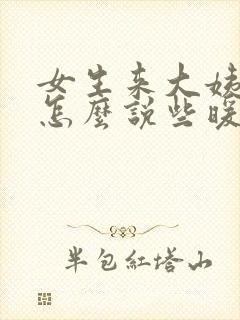 女生来大姨
怎麼說些暖
半包紅塔山